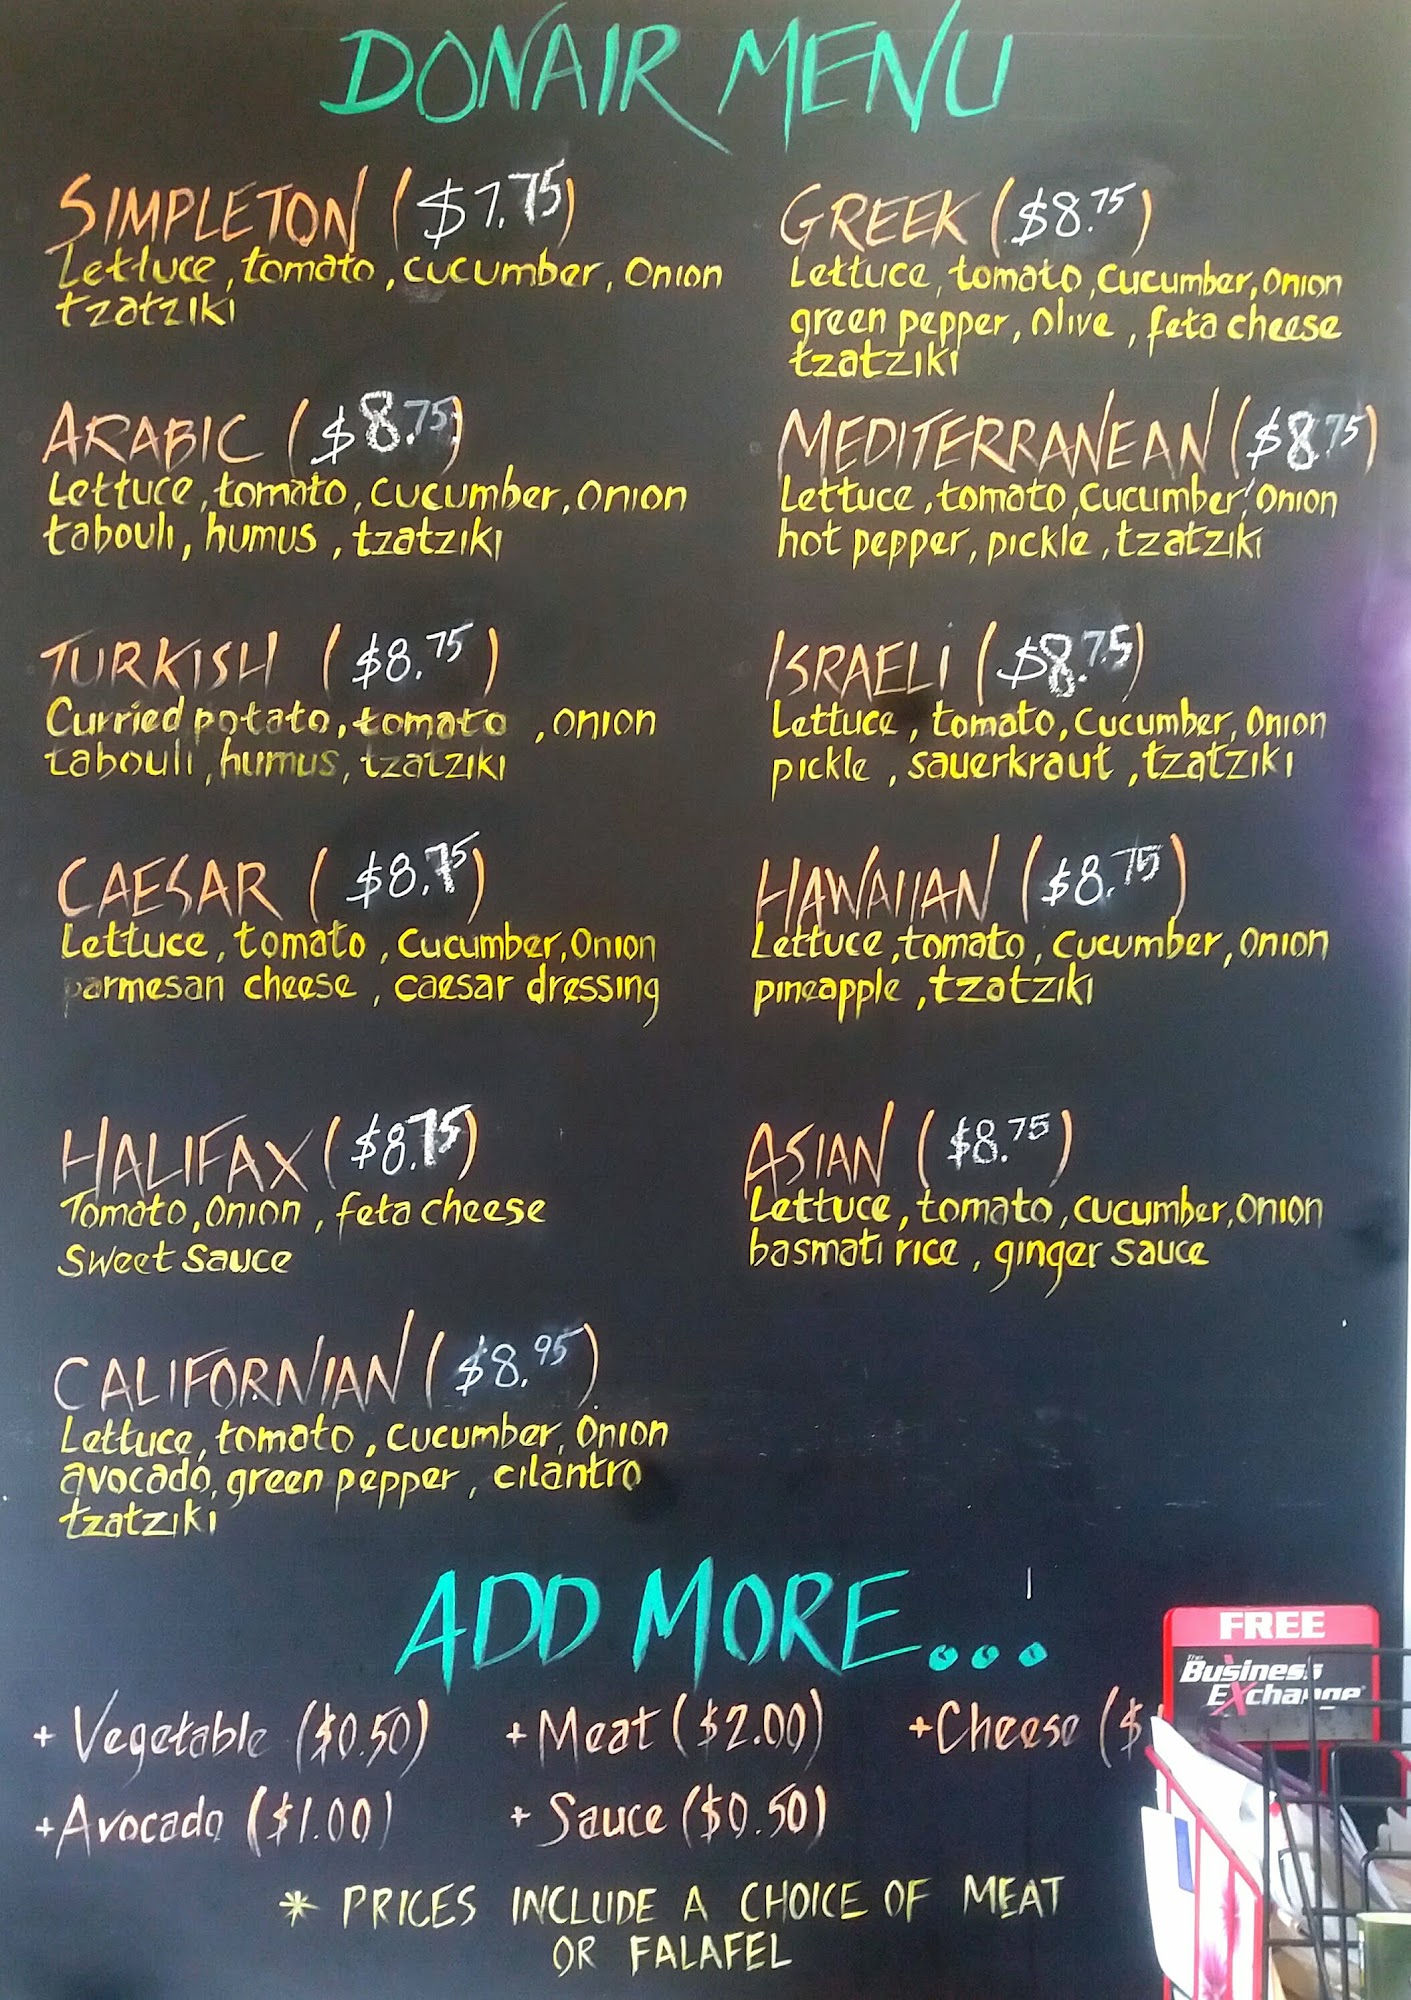 DONAIR MENU
SIMPLETON ($7.75)
Lettuce, tomato, cucumber, onion
tzatziki
ARABIC ($8.75)
Lettuce, tomato, cucumber, onion
tabouli, humus, tzatziki
TURKISH ($8.75)
Curried potato, tomato, onion
tabouli, humus, tzatziki
CAESAR ($8.75)
Lettuce, tomato, cucumber, onion
parmesan cheese, caesar dressing
HALIFAX ($8.75)
Tomato, onion, feta cheese
sweet sauce
CALIFORNIAN ($8.95)
Lettuce, tomato, cucumber, onion
avocado, green pepper, cilantro
tzatziki
GREEK ($8.75)
Lettuce, tomato, cucumber, onion
green pepper, olive, feta cheese
tzatziki
MEDITERRANEAN ($8.75)
Lettuce, tomato, cucumber, onion
hot pepper, pickle, tzatziki
ISRAELI ($8.75)
Lettuce, tomato, cucumber, onion
pickle, sauerkraut, tzatziki
HAWAIIAN ($8.75)
Lettuce, tomato, cucumber, onion
pineapple, tzatziki
ASIAN ($8.75)
Lettuce, tomato, cucumber, onion
basmati rice, ginger sauce
ADD MORE...
+ Vegetable ($0.50) + Meat ($2.00) + Cheese ($
+ Avocado ($1.00) + Sauce ($0.50)
* PRICES INCLUDE A CHOICE OF MEAT
OR FALAFEL
FREE
The Business
Exchange